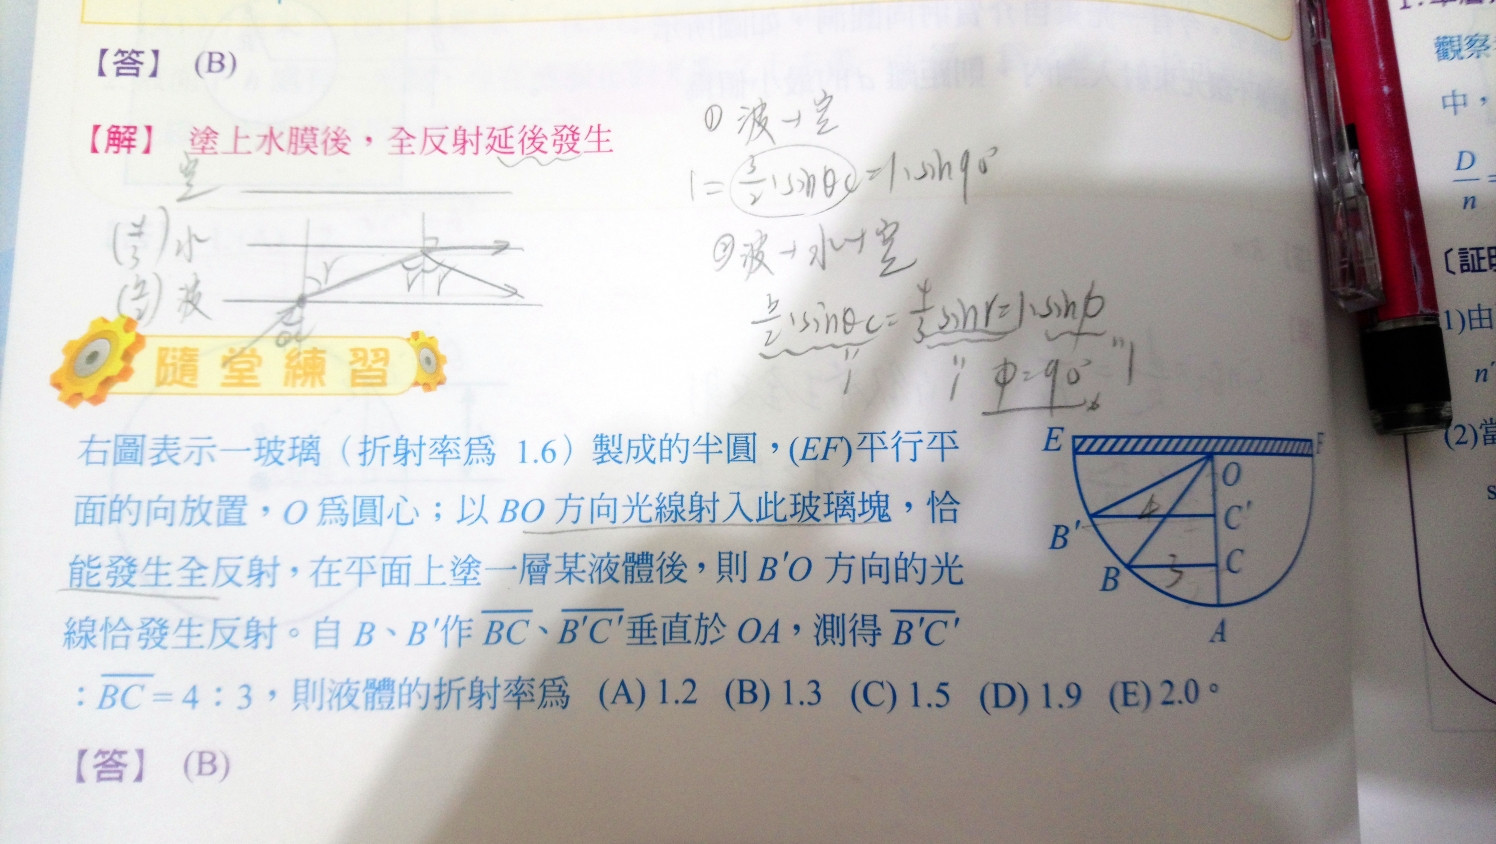 【答】 (B)
【解】 塗上水膜後，全反射延後發生
① 玻→空
1=3/2·sinθc=1·sin90°
空
(4/3)水
② 玻→水→空
(3/2)玻
r
r r
θc
3/2·sinθc=4/3sinr=1·sinφ
1 1 φ=90° 1
隨堂練習
右圖表示一玻璃（折射率爲 1.6）製成的半圓，(EF)平行平
面的向放置，O 爲圓心；以 BO 方向光線射入此玻璃塊，恰
能發生全反射，在平面上塗一層某液體後，則 B′O 方向的光
線恰發生反射。自 B、B′作 BC、B′C′垂直於 OA，測得 B′C′
：BC＝4：3，則液體的折射率爲 (A) 1.2 (B) 1.3 (C) 1.5 (D) 1.9 (E) 2.0。
E F
O
B′ 4 C′
B 3 C
A
【答】 (B)
觀察
中，
D
n
〔証明
1)由
n′
(2)當
s